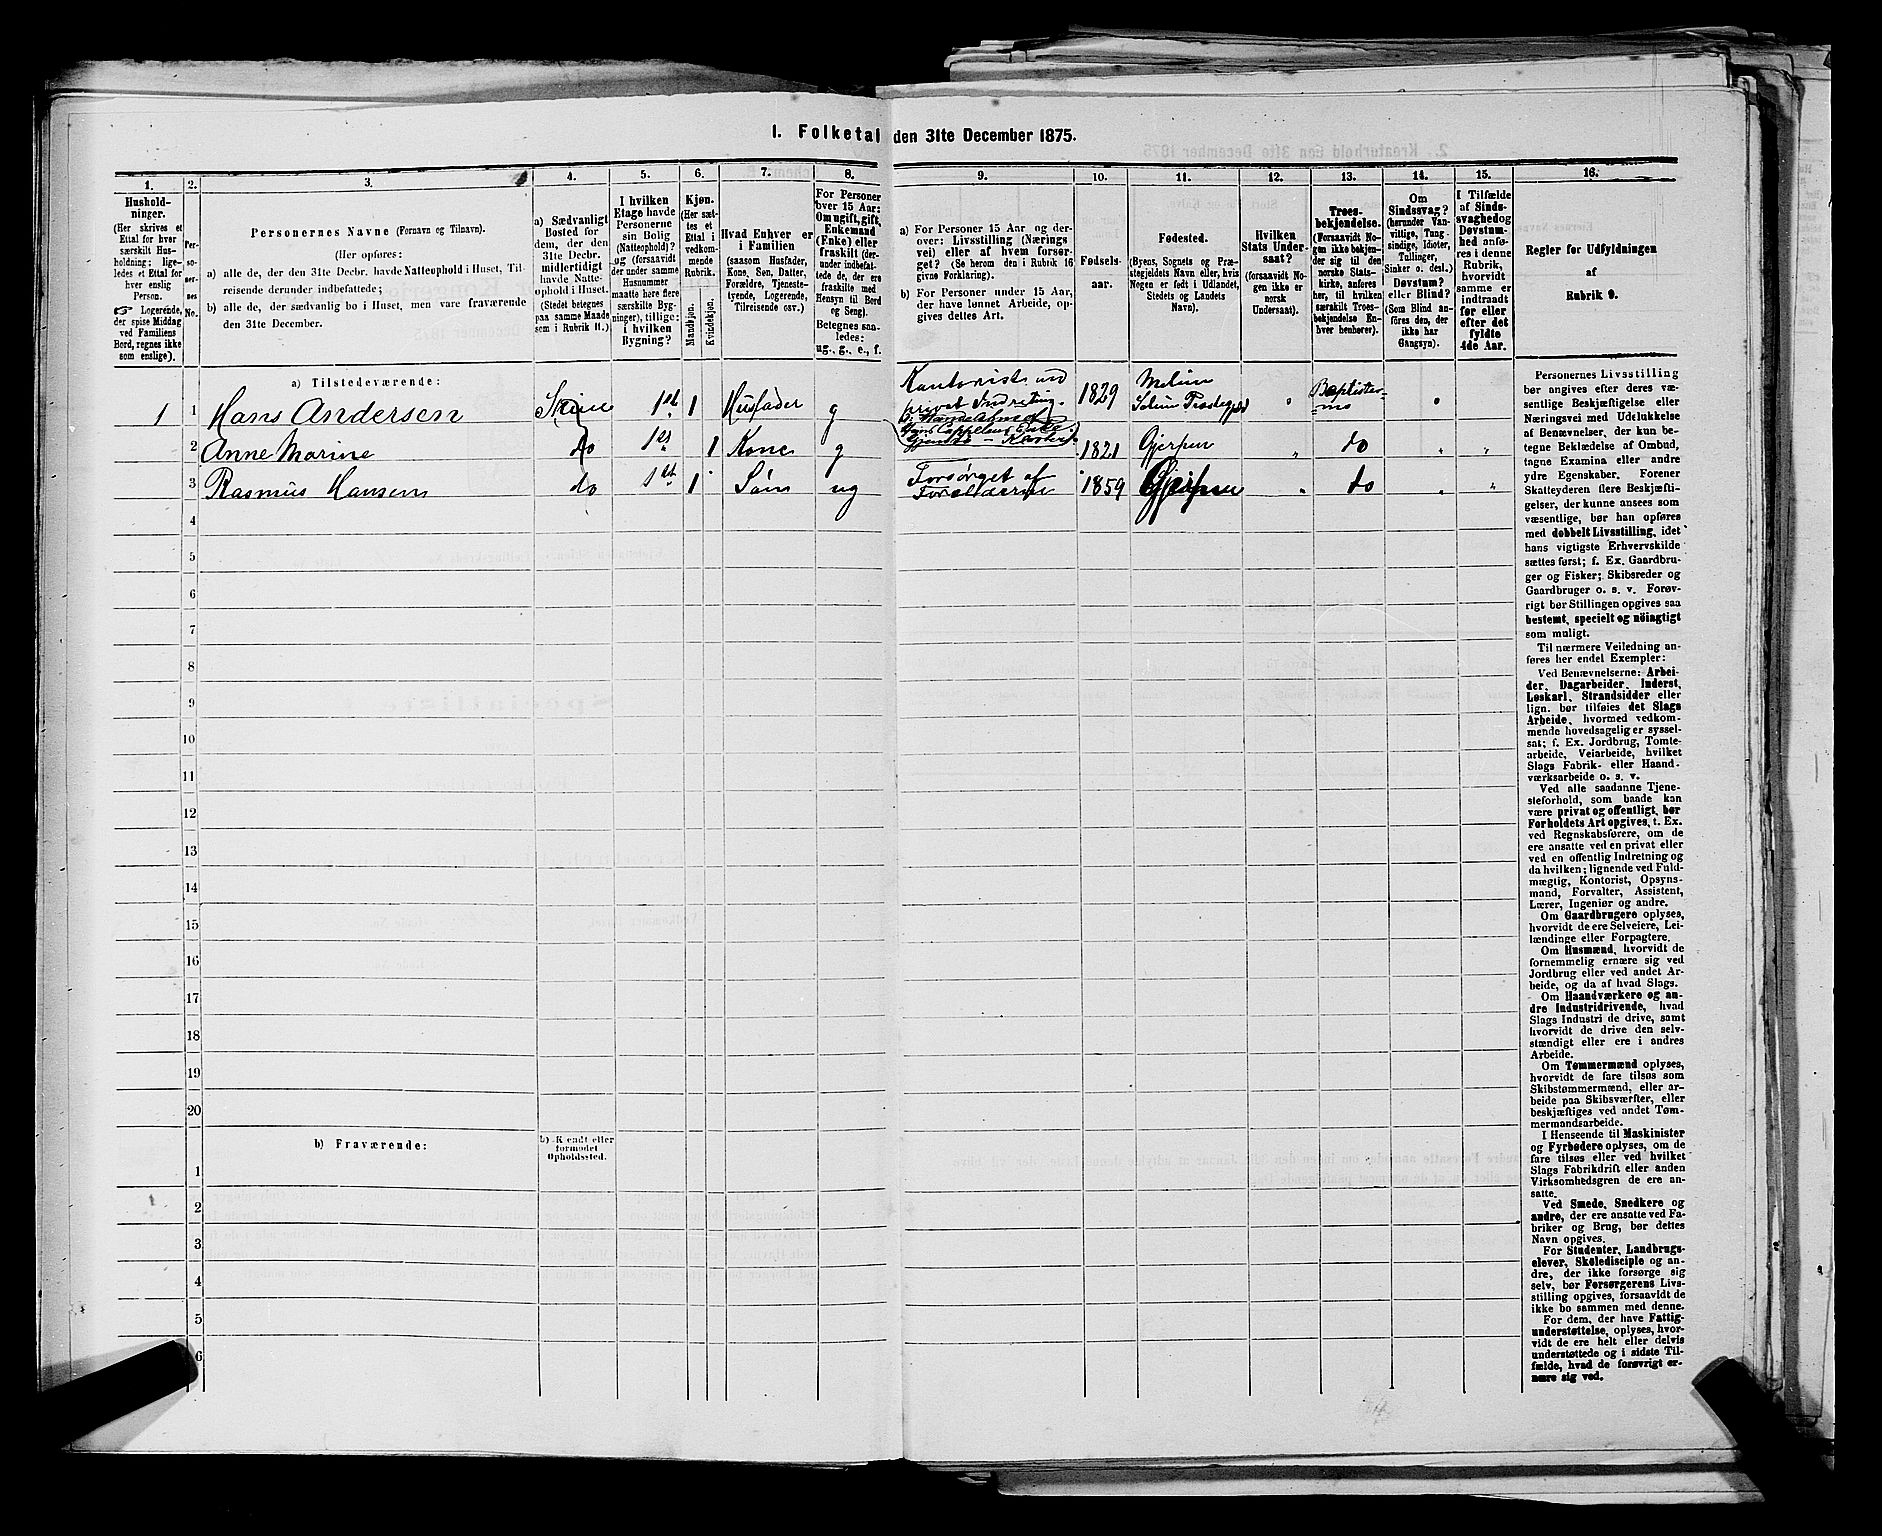 I. Folketal den 31te December 1875.
1.
Hushold-
ninger.
(Her skrives et
Ettal for hver
særskilt Hus-
holdning; lige-
ledes et Ettal for
hver enslig
Person.
☞ Logerende,
der spise Middag
ved Familiens
Bord, regnes ikke
som enslige).
2.
Per-
so-
ner-
nes
No.
3.
Personernes Navne (Fornavn og Tilnavn).
(Her opføres:
a) alle de, der den 31te Decbr. havde Natteophold i Huset, Til-
reisende derunder indbefattede;
b) alle de, der sædvanlig bo i Huset, men vare fraværende
den 31te December.
4.
a) Sædvanligt
Bosted for
dem, der den
31te Decbr.
midlertidigt
havde Natte-
ophold i Huset.
(Stedet betegnes
paa samme Maade
som i Rubrik 11.)
5.
I hvilken
Etage havde
Personerne
sin Bolig
(Natteophold)?
og (forsaavidt
der under samme
Husnummer
maatte høre flere
særskilte Byg-
ninger), tillige:
i hvilken
Bygning?
6.
Kjøn.
(Her sæt-
tes et
Ettal i
vedkom-
mende
Rubrik.
Mandkjøn.
Kvindekjøn.
7.
Hvad Enhver er
i Familien
(saasom Husfader,
Kone, Søn, Datter,
Forældre, Tjeneste-
tyende, Logerende,
Tilreisende osv.)
8.
For Personer
over 15 Aar:
Om ugift, gift,
Enkemand
(Enke) eller
fraskilt (der-
under indbefat-
tede de, der ere
fraskilte med
Hensyn til Bord
og Seng).
Betegnes saa-
ledes:
ug., g., e., f.
9.
a) For Personer 15 Aar og der-
over: Livsstilling (Nærings
vei) eller af hvem forsør-
get? (Se herom den i Rubrik 16
givne Forklaring).
b) For Personer under 15 Aar,
der have lønnet Arbeide, op-
gives dettes Art.
10.
Fødsels-
aar.
11.
Fødested.
(Byens, Sognets og Præ-
stegjeldets Navn eller, hvis
Nogen er født i Udlandet,
Stedets og Landets
Navn).
12.
Hvilken
Stats Under-
saat?
(forsaavidt No-
gen ikke er
norsk
Undersaat).
13.
Troes-
bekjendelse.
(Forsaavidt No-
gen ikke bekjen-
der sig til den
norske Stats-
kirke, anføres
her, til hvilket
særskilt Troes-
bekjendelse En-
hver henhører).
14.
Om
Sindssvag?
(herunder Van-
vittige, Tung-
sindige, Idioter,
Tullinger,
Sinker o. desl.)
Døvstum?
eller Blind?
(Som Blind an-
føres den, der
ikke har
Gangsyn).
15.
I Tilfælde
af Sinds-
svaghed og
Døvstum-
hed anfø-
res i denne
Rubrik,
hvorvidt
samme er
indtraadt
før eller
efter det
fyldte
4de Aar.
16.
Regler for Udfyldningen
af
Rubrik 9.
a) Tilstedeværende:
1 1 Hans Andersen Skien 1st 1 Husfader g Kontorist ved
privat Indretning 1829 Melum
Solum Præstegjeld " Baptister-
ne "
2 Anne Marine do 1st 1 Kone g 1821 Gjerpen " do " "
3 Rasmus Hansen do 1st 1 Søn ug Forsørget af
Forældrene 1859 Gjerpen " do " "
4
5
6
7
8
9
10
11
12
13
14
15
16
17
18
19
20
b) Fraværende:
b) Kjendt eller
formodet
Opholdssted.
1
2
3
4
5
6
Personernes Livsstilling
bør angives efter deres væ-
sentlige Beskjæftigelse eller
Næringsvei med Udelukkelse
af Benævnelser, der kun be-
tegne Beklædelse af Ombud,
tagne Examina eller andre
ydre Egenskaber. Forener
Skatteyderen flere Beskjæfti-
gelser, der kunne ansees som
væsentlige, bør han opføres
med dobbelt Livsstilling, idet
hans vigtigste Erhvervskilde
sættes først; f. Ex. Gaardbru-
ger og Fisker; Skibsreder og
Gaardbruger o. s. v. Forøv-
rigt bør Stillingen opgives saa
bestemt, specielt og nöiagtigt
som muligt.
Til nærmere Veiledning an-
føres her endel Exempler:
Ved Benævnelserne: Arbei-
der, Dagarbeider, Inderst,
Løskarl, Strandsidder eller
lign. bør tilføies det Slags
Arbeide, hvormed vedkom-
mende hovedsagelig er syssel-
sat; f. Ex. Jordbrug, Tomte-
arbeide, Veiarbeide, hvilket
Slags Fabrik- eller Haand-
værksarbeide o. s. v.
Ved alle saadanne Tjene-
steforhold, som baade kan
være privat og offentligt, bør
Forholdets Art opgives, t. Ex.
ved Regnskabsførere, om de
ere ansatte ved en privat eller
ved en offentlig Indretning og
da hvilken; lignende ved Fuld-
mægtig, Kontorist, Opsyns-
mand, Forvalter, Assistent,
Lærer, Ingeniør og andre.
Om Gaardbrugere oplyses,
hvorvidt de ere Selveiere, Lei-
lændinge eller Forpagtere.
Om Husmænd, hvorvidt de
fornemmelig ernære sig ved
Jordbrug eller ved andet Ar-
beide, og da af hvad Slags.
Om Haandværkere og an-
dre Industridrivende, hvad
Slags Industri de drive, samt
hvorvidt de drive den selv-
stændigt eller ere i andres
Arbeide.
Om Tømmermænd oplyses,
hvorvidt de fare tilsøs som
Skibstømmermænd, eller ar-
beide paa Skibsværfter, eller
beskjæftiges ved andet Tøm-
mermandsarbeide.
I Henseende til Maskinister
og Fyrbødere oplyses, om de
fare tilsøs eller ved hvilket
Slags Fabrikdrift eller anden
Virksomhedsgren de ere an-
satte.
Ved Smede, Snedkere og
andre, der ere ansatte ved Fa-
briker og Brug, bør dettes
Navn opgives.
For Studenter, Landbrugs-
elever, Skoledisciple og an-
dre, der ikke forsørge sig
selv, bør Forsørgerens Livs-
stilling opgives, forsaavidt de
ikke bo sammen med denne.
For dem, der have Fattig-
understøttelse, oplyses, hvor-
vidt de ere helt eller delvis
understøttede og i sidste Til-
fælde, hvad de forøvrigt er-
nære sig ved.